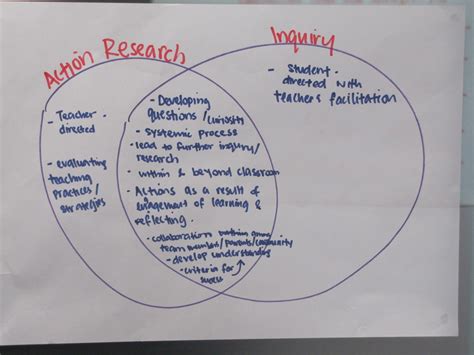 Action Research
Inquiry
- Teacher directed
- evaluating
teaching
practices/
strategies
- Developing
questions/curiosity
- systemic process
- lead to further inquiry/
research
- within & beyond classroom
- Actions as a result of
engagement of learning &
reflecting.
- collaboration among
team members/parents/community
- develop understanding
- criteria for
success
- Student.
directed with
teachers facilitation